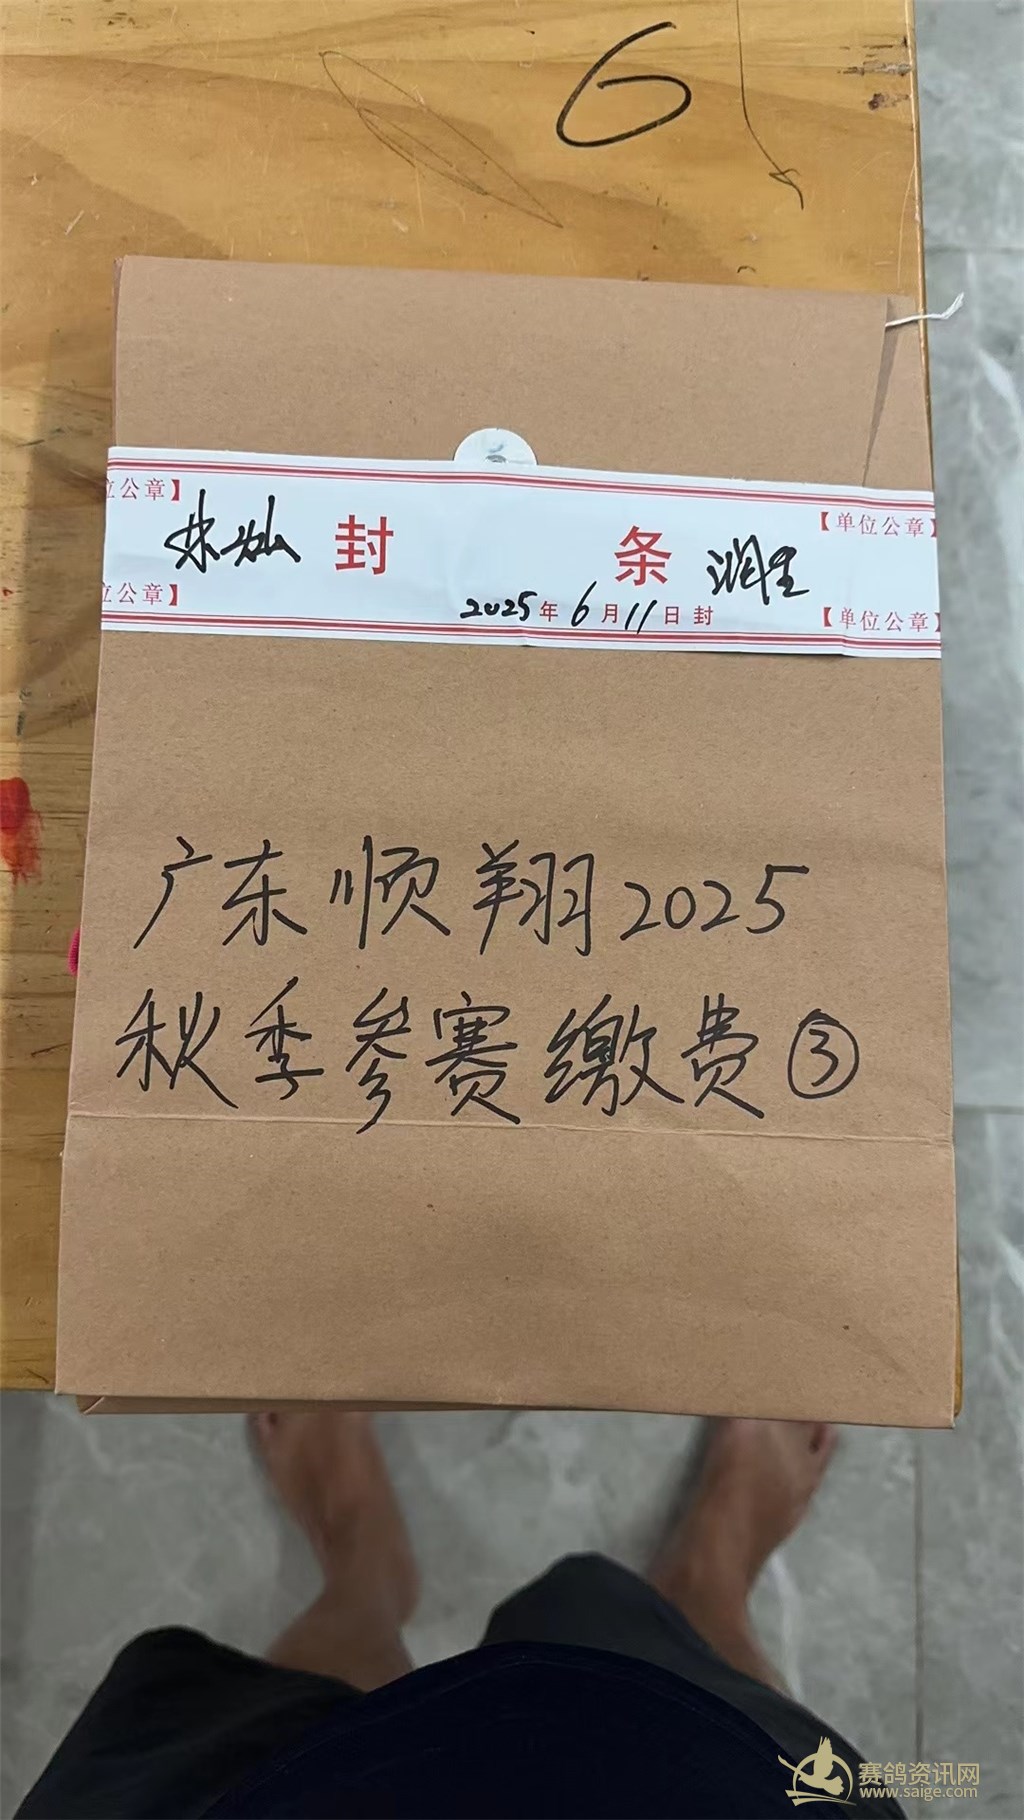 6
位公章】
封
条
【单位公章】
润生
位公章】
2025年6月11日封
【单位公章】
广东顺翔2025
秋季参赛缴费③
赛鸽资讯网
www.saige.com